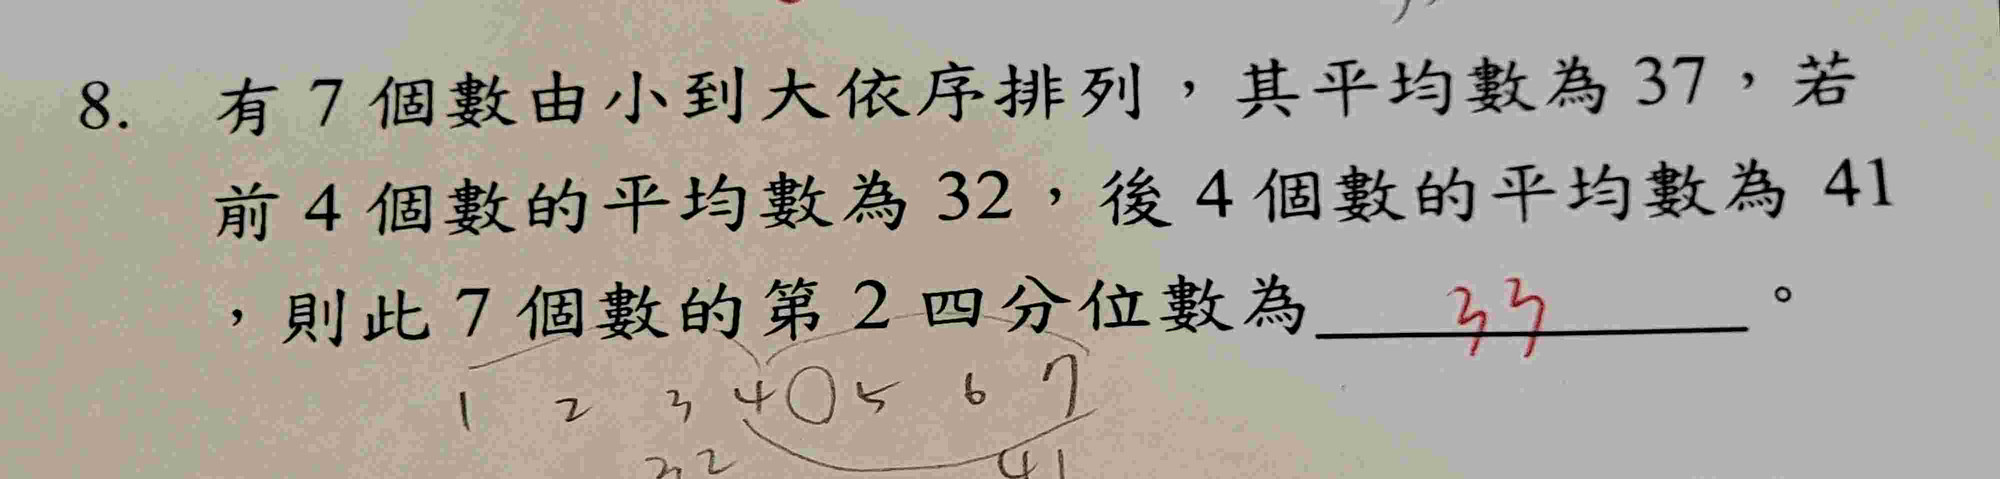 8. 有 7 個數由小到大依序排列，其平均數為 37，若
前 4 個數的平均數為 32，後 4 個數的平均數為 41
，則此 7 個數的第 2 四分位數為 33 。
1 2 3 4 5 6 7
32 41